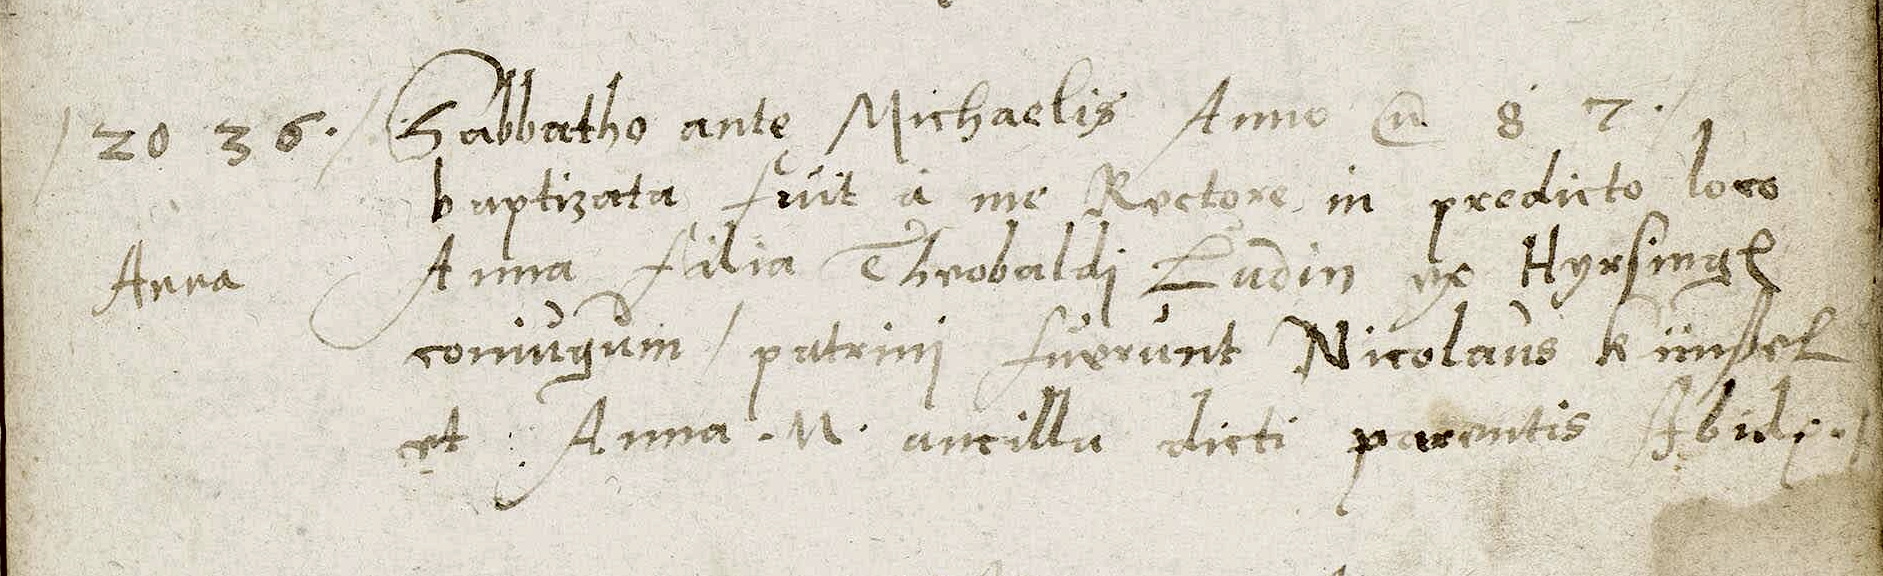 / 20 36. / Sabbatho ante Michaelis Anno 87. /
baptizata fuit à me Rectore in predicto loco
Anna Anna filia Theobaldi Ludin ex Hyrsing
coniugum / patrini fuerunt Nicolaus
et Anna . N. ancilla dicti parentis Ibide. /